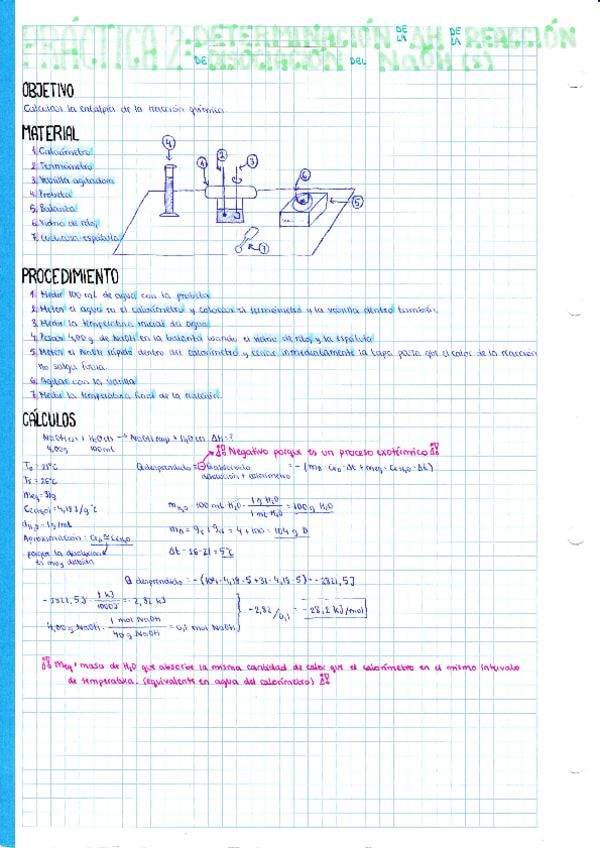 PRÁCTICA 2: DETERMINACIÓN DE LA ΔH DE LA REACCIÓN
DE DISOLUCIÓN DEL NaOH (s)
OBJETIVO
Calcular la entalpía de la reacción química.
MATERIAL
1. Calorímetro
2. Termómetro
3. Varilla agitadora
4. Probeta
5. Balanza
6. Vidrio de reloj
7. Cuchara-espátula
4
1 2 3
6
5
7
PROCEDIMIENTO
1. Medir 100 mL de agua con la probeta
2. Meter el agua en el calorímetro y colocar el termómetro y la varilla dentro también.
3. Medir la temperatura inicial del agua
4. Pesar 4,00 g de NaOH en la balanza usando el vidrio de reloj y la espátula
5. Meter el NaOH rápido dentro del calorímetro y cerrar inmediatamente la tapa para que el calor de la reacción
no salga fuera.
6. Agitar con la varilla
7. Medir la temperatura final de la reacción.
CÁLCULOS
NaOH (s) + H₂O (l) → NaOH (aq) + H₂O (l) ΔH = ?
4,00g 100mL
Negativo porque es un proceso exotérmico
T₀ = 21°C
Q desprendido = - Q absorbido = - (m_D · Ce_D · Δt + meq · Ce H₂O · Δt)
disolución + calorímetro
Meq = 31g
Ce(H₂O) = 4,18 J/g °C
m H₂O = 100 mL H₂O · 1g H₂O / 1 mL H₂O = 100 g H₂O
d H₂O = 1g/mL
Aproximación: Ce_D ≈ Ce H₂O
porque la disolución
es muy diluida
= 4 + 100 = 104 g D
Δt = 26-21 = 5°C
Q desprendido = - (104 · 4,18 · 5 + 31 · 4,18 · 5) = - 2821,5 J
- 2821,5 J · 1 kJ / 1000 J = - 2,82 kJ
- 2,82 / 0,1 = - 28,2 kJ/mol
4,00 g NaOH · 1 mol NaOH / 40 g NaOH = 0,1 mol NaOH
Meq: masa de H₂O que absorbe la misma cantidad de calor que el calorímetro en el mismo intervalo
de temperatura. (equivalente en agua del calorímetro)